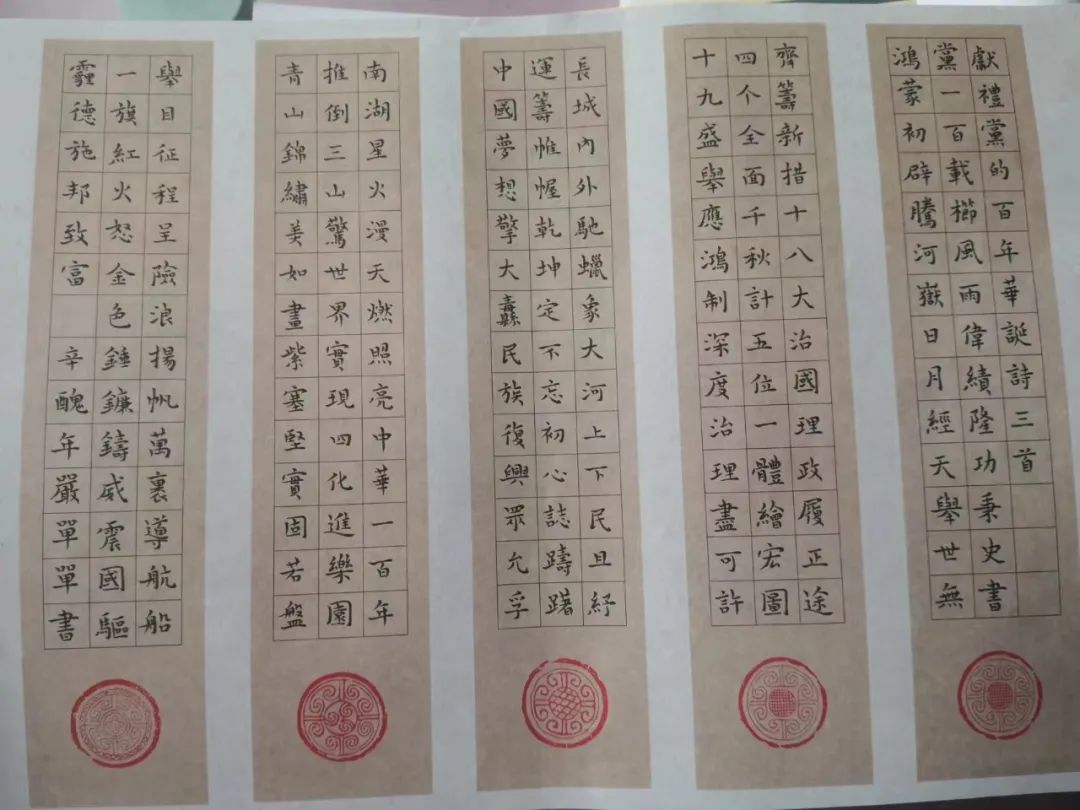 獻禮黨的百年華誕詩三首
黨一百載櫛風雨偉績隆功秉史書
鴻蒙初辟騰河嶽日月經天舉世無
齊籌新措十八大治國理政履正途
四个全面千秋計五位一體繪宏圖
十九盛舉應鴻制深度治理盡可許
長城內外馳蠟象大河上下民且紓
運籌帷幄乾坤定不忘初心誌躊躇
中國夢想擎大纛民族復興眾允孚
南湖星火漫天燃照亮中華一百年
推倒三山驚世界實現四化進樂園
青山錦繡美如畫紫塞堅實固若盤
舉目征程呈險浪揚帆萬裏導航船
一旗紅火怒金色錘鐮鑄威震國驅
霾德施邦致富 辛醜年嚴單單書